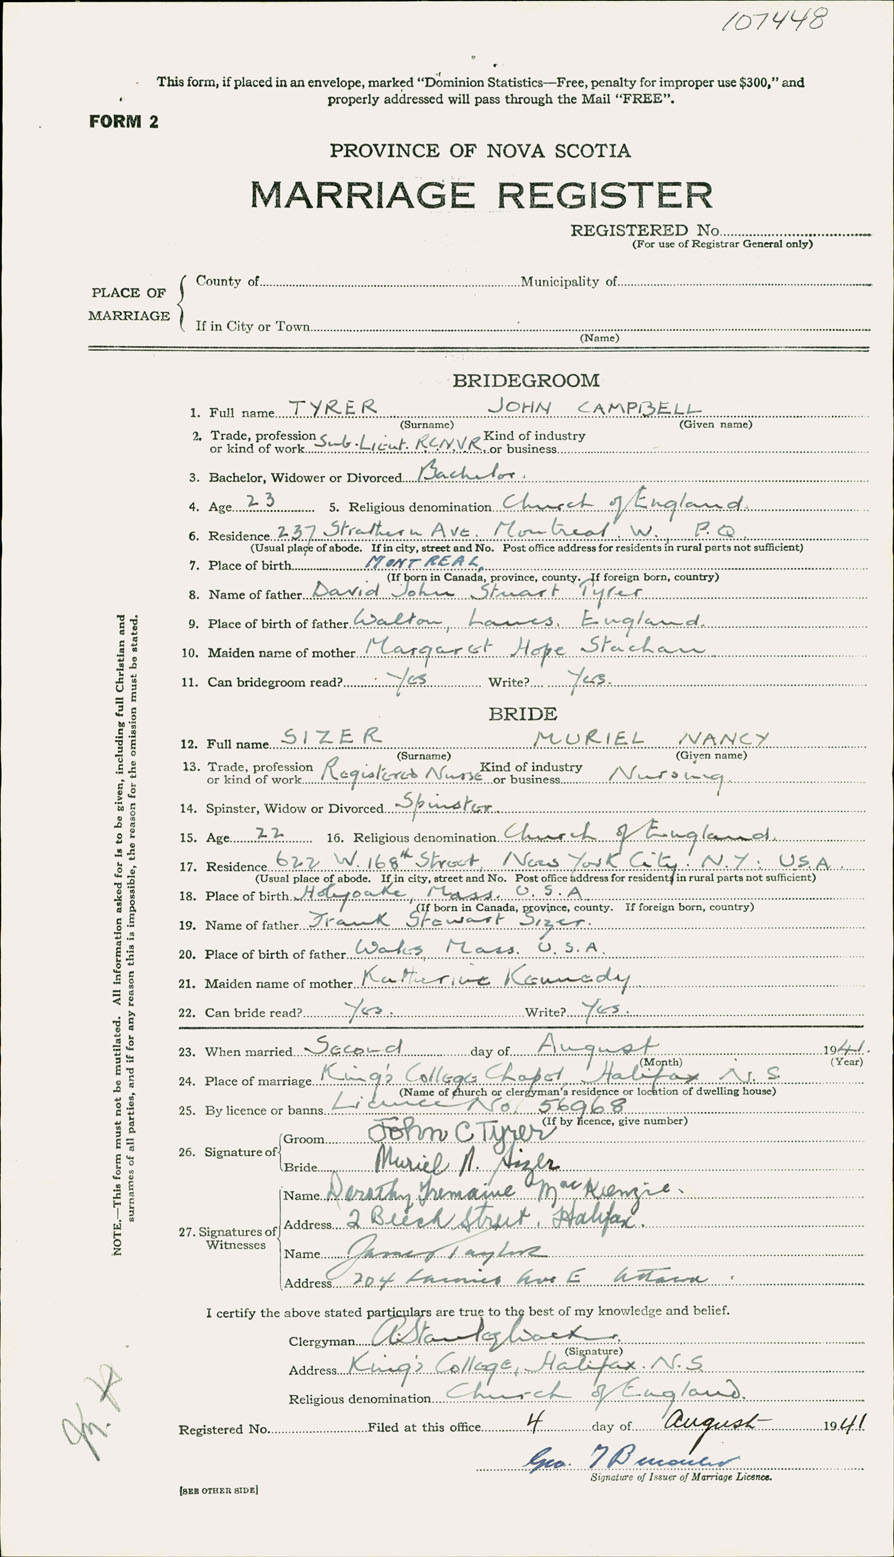 107448
This form, if placed in an envelope, marked "Dominion Statistics—Free, penalty for improper use $300," and
properly addressed will pass through the Mail "FREE".
FORM 2
PROVINCE OF NOVA SCOTIA
MARRIAGE REGISTER
REGISTERED No.
(For use of Registrar General only)
PLACE OF MARRIAGE
County of Municipality of
If in City or Town
(Name)
BRIDEGROOM
1. Full name TYRER JOHN CAMPBELL
(Surname) (Given name)
2. Trade, profession or kind of work Sub-Lieut. R.C.N.V.R. Kind of industry or business
3. Bachelor, Widower or Divorced Bachelor.
4. Age 23 5. Religious denomination Church of England.
6. Residence 237 Strathern Ave. Montreal. W., P.Q.
(Usual place of abode. If in city, street and No. Post office address for residents in rural parts not sufficient)
7. Place of birth MONTREAL,
(If born in Canada, province, county. If foreign born, country)
8. Name of father David John Stuart Tyrer
9. Place of birth of father Walton, Lancs. England.
10. Maiden name of mother Margaret Hope Stachan
11. Can bridegroom read? Yes Write? Yes.
BRIDE
12. Full name SIZER MURIEL NANCY
(Surname) (Given name)
13. Trade, profession or kind of work Registered Nurse Kind of industry or business Nursing.
14. Spinster, Widow or Divorced Spinster.
15. Age 22 16. Religious denomination Church of England.
17. Residence 622 W. 168th Street, New York City. N.Y. U.S.A.
(Usual place of abode. If in city, street and No. Post office address for residents in rural parts not sufficient)
18. Place of birth Holyoake, Mass. U.S.A
(If born in Canada, province, county. If foreign born, country)
19. Name of father Frank Stewart Sizer.
20. Place of birth of father Wales, Mass. U.S.A.
21. Maiden name of mother Katherine Kennedy
22. Can bride read? Yes. Write? Yes.
23. When married Second day of August 1941.
(Month) (Year)
24. Place of marriage King's College Chapel, Halifax N.S
(Name of church or clergyman's residence or location of dwelling house)
25. By licence or banns Licence No. 56968
(If by licence, give number)
26. Signature of
Groom John C Tyrer
Bride Muriel N. Sizer
27. Signatures of Witnesses
Name Dorothy Tremaine MacKenzie.
Address 2 Beech Street, Halifax.
Name James Taylor
Address 204 Ave E Ottawa.
I certify the above stated particulars are true to the best of my knowledge and belief.
Clergyman
(Signature)
Address King's College, Halifax. N.S
Religious denomination Church of England.
Registered No. Filed at this office 4 day of August 1941
Geo.
Signature of Issuer of Marriage Licence.
[SEE OTHER SIDE]
NOTE.—This form must not be mutilated. All information asked for is to be given, including full Christian and
surnames of all parties, and if for any reason this is impossible, the reason for the omission must be stated.